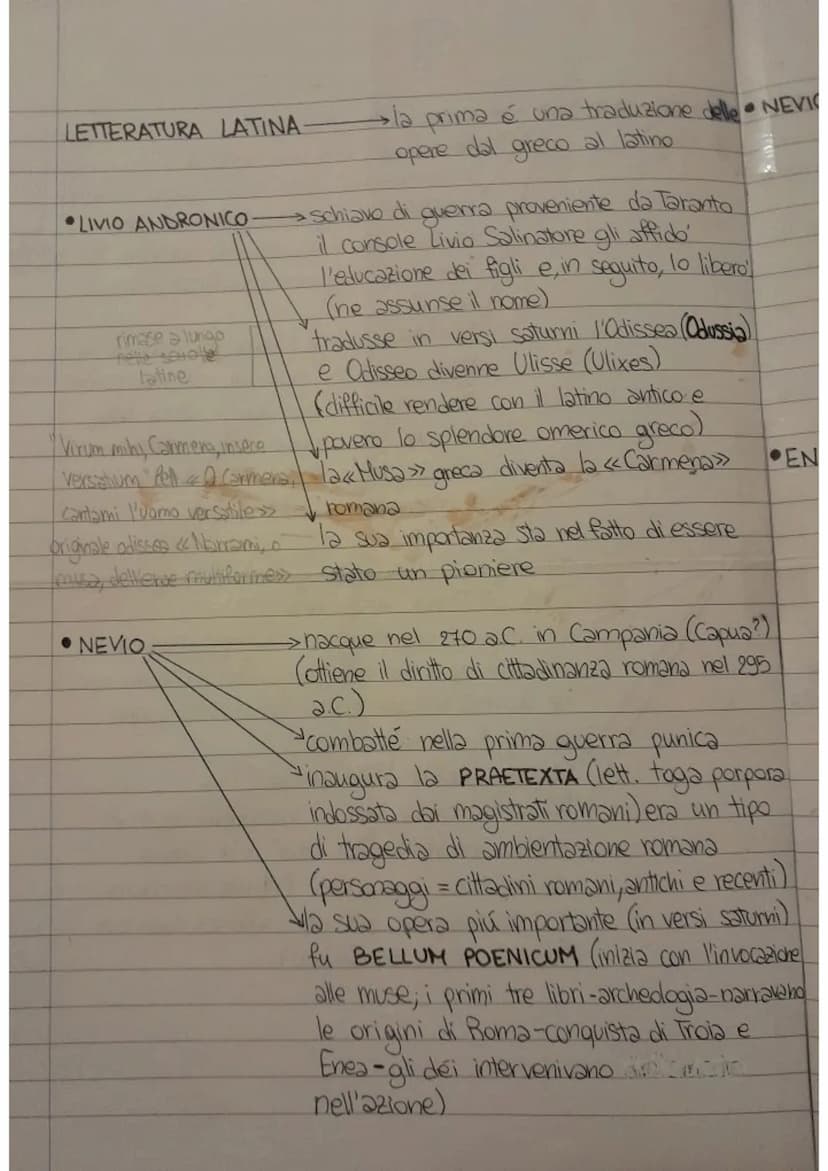 LETTERATURA LATINA → la prima é una traduzione delle
opere dal greco al latino
• NEVIO
• LIVIO ANDRONICO → schiavo di guerra proveniente da Taranto
il console Livio Salinatore gli affidó
l'educazione dei figli e, in seguito, lo liberó
(ne assunse il nome)
tradusse in versi saturni l'Odissea (Odussia)
e Odisseo divenne Ulisse (Ulixes)
(difficile rendere con il latino antico e
povero lo splendore omerico greco)
la «Musa» greca diventa la «Carmena»
romana
la sua importanza sta nel fatto di essere
stato un pioniere
rimase a lungo
nelle scuole
latine
"Virum mihi, Carmena, insece
versatum" «O Carmena,
cantami l'uomo versatile»
originale odissea «Narrami, o
musa, dell'eroe multiforme»
• EN
• NEVIO → nacque nel 270 a.C. in Campania (Capua?)
(ottiene il diritto di cittadinanza romana nel 295
a.C.)
combatté nella prima guerra punica
inaugura la PRAETEXTA (lett. toga porpora
indossata dai magistrati romani) era un tipo
di tragedia di ambientazione romana
(personaggi = cittadini romani, antichi e recenti)
la sua opera piú importante (in versi saturni)
fu BELLUM POENICUM (inizia con l'invocaziche
alle muse; i primi tre libri-archeologia-narravano
le origini di Roma-conquista di Troia e
Enea-gli déi intervenivano
nell'azione)